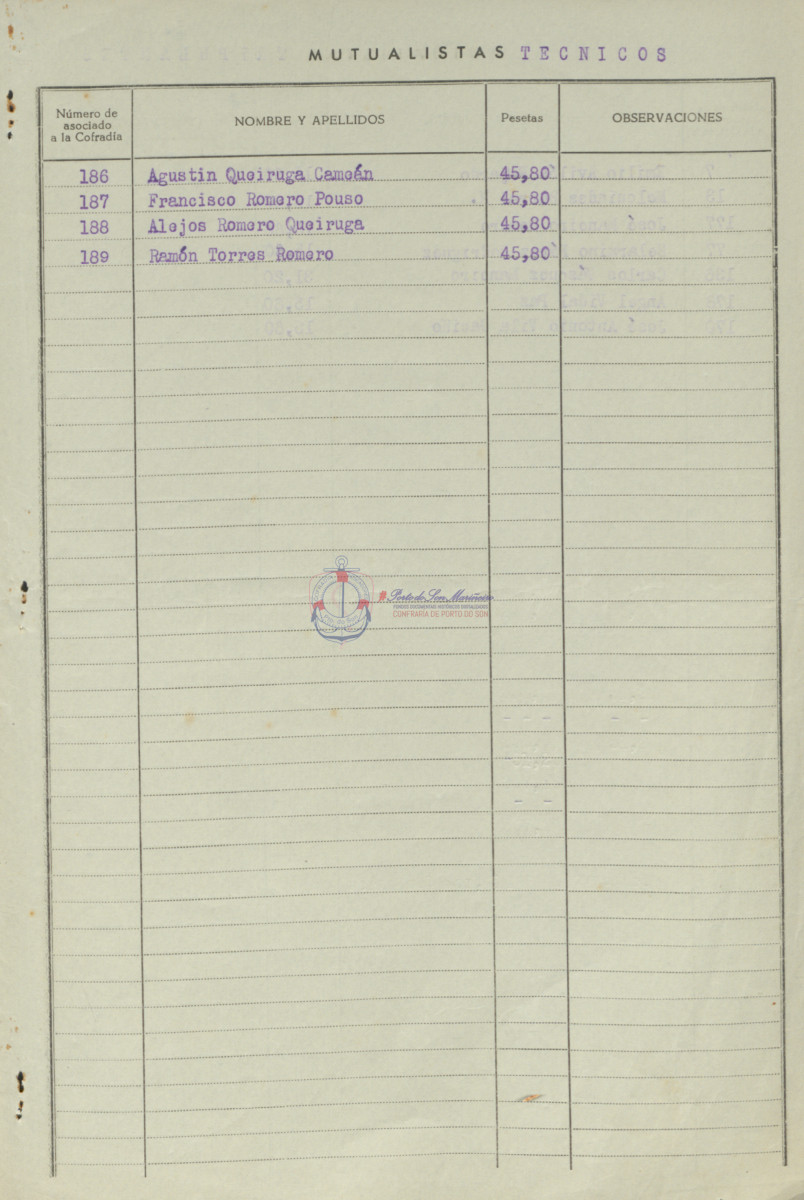 MUTUALISTAS TECNICOS
Número de asociado a la Cofradía NOMBRE Y APELLIDOS Pesetas OBSERVACIONES
186 Agustin Queiruga Cameán 45,80
187 Francisco Romero Pouso 45,80
188 Alejos Romero Queiruga 45,80
189 Ramón Torres Romero 45,80
Porto do Son Mariñeiro
FONDOS DOCUMENTAIS HISTÓRICOS DIXITALIZADOS
CONFRARÍA DE PORTO DO SON